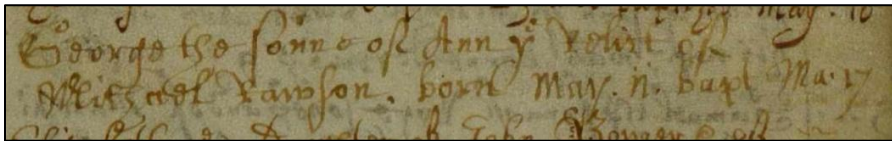 May. 10
George the sonne of Ann yͤ Relict of
Mitchaell Rawson. born May. 11. bapt Ma: 17
John